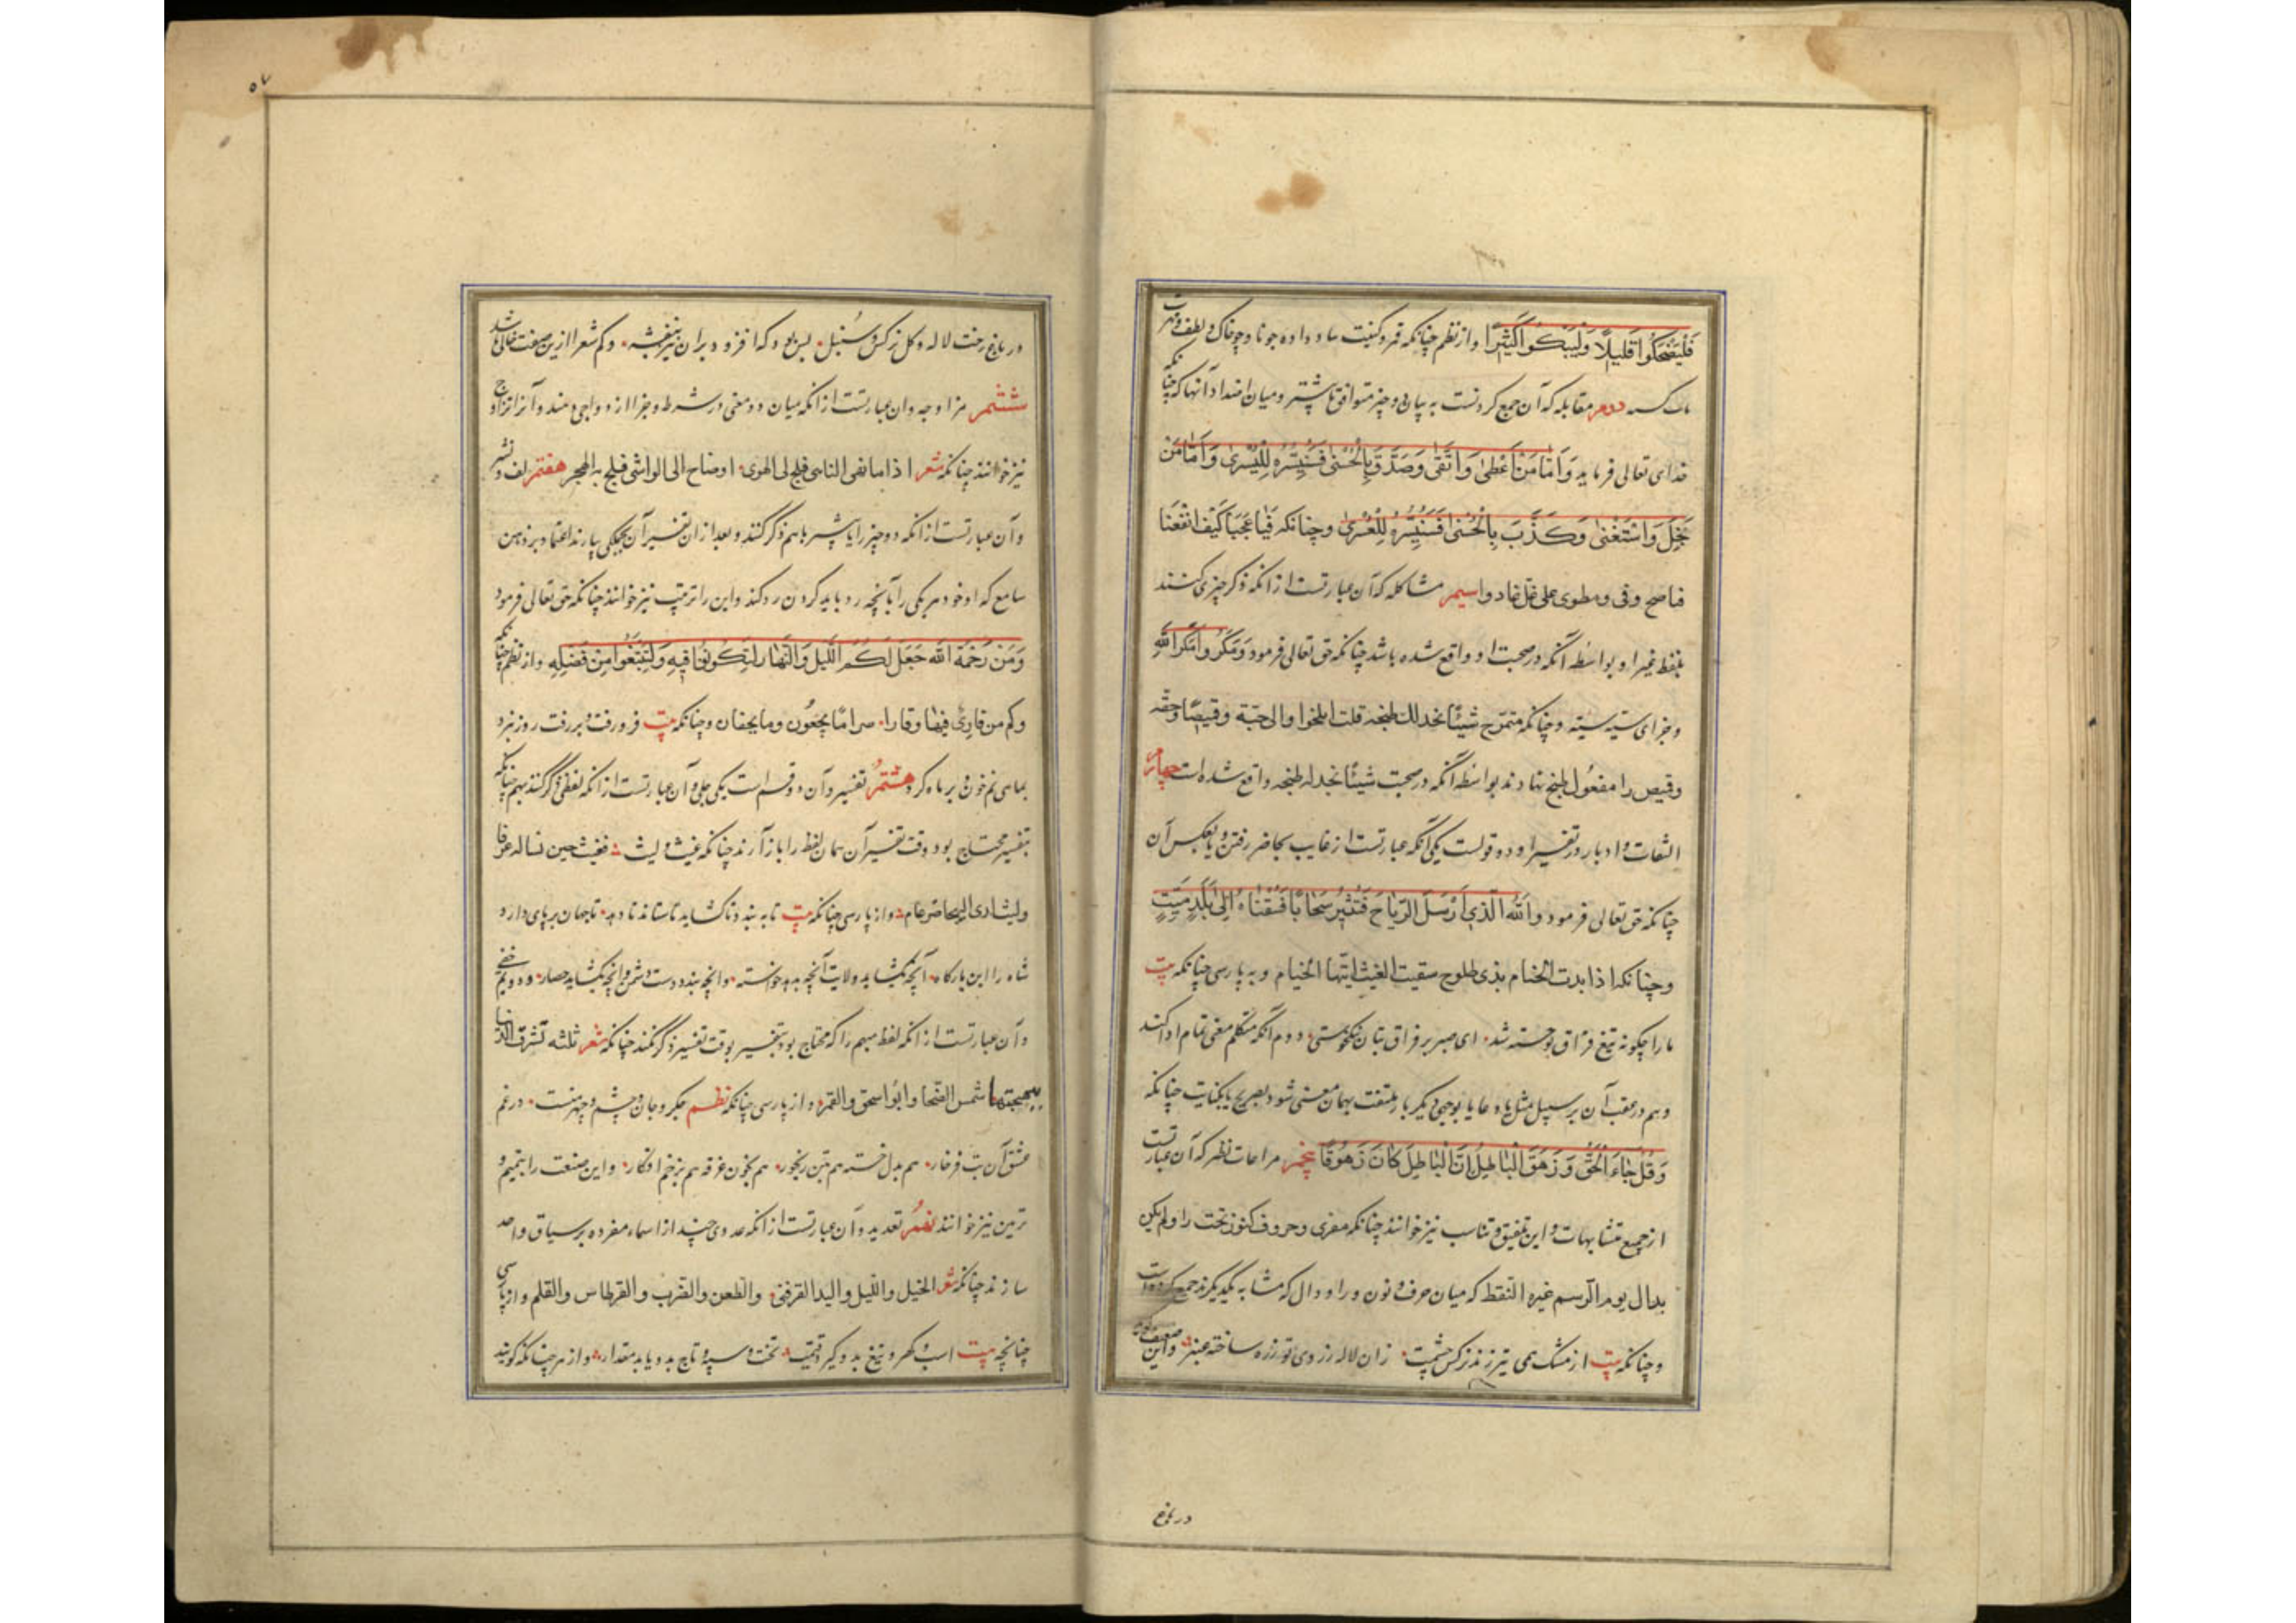 فَلْيَضْحَكُوا قَلِيلًا وَلْيَبْكُوا كَثِيرًا و از نظم چنانکه
دومر مقابله که آن جمع کردنست به پیان دو چیز متوافق تا پیشتر و میان اضداد آنها که چنانکه
خدای تعالی فرماید وَاَمَّا مَنْ اَعْطٰی وَاتَّقٰی وَصَدَّقَ بِالْحُسْنٰی فَسَنُیَسِّرُهُ لِلْیُسْرٰی وَاَمَّا مَنْ
بَخِلَ وَاسْتَغْنٰی وَکَذَّبَ بِالْحُسْنٰی فَسَنُیَسِّرُهُ لِلْعُسْرٰی و چنانکه فیا عجبا کیف اتفقنا
فناصح وفی ومطوی علی غل غادر سیمر مشاکله که آن عبارتست از آنکه ذکر چیزی کنند
بلفظ غیر او بواسطه آنکه در صحبت او واقع شده باشد چنانکه حق تعالی فرمود وَمَکَرُوا وَمَکَرَ اللّٰهُ
و جزای سیئه سیئه و چنانکه شیئا نجد لک طبخه قلت اطبخوا والی جبة وقمیصا
و قمیص را مفعول طبخ نهادند بواسطه آنکه در صحبت شیئا نجد له طبخه واقع شده است چهارم
التفات و ادبا در تفسیر او دو قولست یکی آنکه عبارتست از غایب بحاضر رفتن و یا بعکس آن
چنانکه حق تعالی فرمود وَاللّٰهُ الَّذِی اَرْسَلَ الرِّیَاحَ فَتُثِیرُ سَحَابًا فَسُقْنَاهُ اِلٰی بَلَدٍ مَیِّتٍ
و چنانکه اذا بدت الخیام بذی طلوح سقیت الغیث ایتها الخیام و به پارسی چنانکه بیت
ما را چگونه تیغ فراق تو خسته شد ای صبر بر فراق بتان نیک جوشنی دوم آنکه متکلم معنی تمام ادا کند
و هم در عقب آن بر سبیل مثل یا دعا یا بوجهی دیگر باز ملتفت بهمان معنی شود بصریح یا کنایت چنانکه
وَقُلْ جَاءَ الْحَقُّ وَزَهَقَ الْبَاطِلُ اِنَّ الْبَاطِلَ کَانَ زَهُوقًا پنجمر مراعات نظیر که آن عبارتست
از جمع متشابهات و این را تلفیق و تناسب نیز خوانند چنانکه معری وحروف کنون تحت راء ولم یکن
بدال یؤم الرسم غیره النقط که میان حرف و نون و را و دال که مشابه یکدیگرند جمع کرده است
و چنانکه بیت از مشک همی تیر زند نرگس چشمت زان لاله روی تو زره ساخت عنبر
در باغ
۵۷
در باغ رخت لاله و گل نرگس و سنبل بس بود که افزود بر آن نیز بنفشه و کم شعر ازین صفت خالی باشد
ششمر مزاوجه و آن عبارتست از آنکه میان دو معنی در شرط و جزا ازدواجی دهند و آنرا ازدواج
نیز خوانند چنانکه شعر اذا ما نهی الناهی فلج لی الهوی اصاخ الی الواشی فلج به الهجر هفتمر لف و نشر
و آن عبارتست از آنکه دو چیز را یا بیشتر با هم ذکر کنند و بعد از آن تفسیر آن بجملگی بیارند اعتماد بر ذهن
سامع که او خود هر یکی را بآنچه رد باید کردن رد کند و این را ترتیب نیز خوانند چنانکه حق تعالی فرمود
وَمِنْ رَحْمَةِ اللّٰهِ جَعَلَ لَکُمُ اللَّیْلَ وَالنَّهَارَ لِتَسْکُنُوا فِیهِ وَلِتَبْتَغُوا مِنْ فَضْلِهِ و از نظم چنانکه
وکم من قاری فیها وقارا و چنانکه بیت فرو رفت و بر رفت روز نبرد
بماهی نم خون و بر ماه گرد هشتمر تفسیر و آن دو قسم است یکی جلی و آن عبارتست از آنکه لفظی ذکر کنند مبهم چنانکه
بتفسیر محتاج بود و وقت تفسیر آن همان لفظ را باز آرند چنانکه غیث و لیث فغیث حین تساله عرفا
ولیث لدی الهیجا ضرغام و از پارسی چنانکه بیت تا ببندد تا گشاید تا ستاند تا دهد تا جهان بر پای دارد
شاه را این بارگاه آنچه بگشاید ولایت آنچه بدهد خواسته وآنچه بندد دست دشمن وآنچه بگشاید حصار و دویم خفی
و آن عبارتست از آنکه لفظ مبهم را که محتاج بود بتفسیر بوقت تفسیر ذکر نکنند چنانکه شعر ثلثة تشرق الدنیا
ببهجتها شمس الضحا وابو اسحق والقمر و از پارسی چنانکه نظم جگر و جان و چشم و چهر منست در غم
عشق آن بت فرخار هم بدل خسته هم بتن رنجور هم بخون غرقه هم بزخم افکار و این صنعت را تتمیم و
تزین نیز خوانند نهمر تعدید و آن عبارتست از آنکه عددی چند از اسماء مفرده بر سیاق واحد
سازند چنانکه شعر الخیل واللیل والبیداء تعرفنی والطعن والضرب والقرطاس والقلم و از پارسی
چنانچه بیت اسب و گهر و تیغ بدو گیرد قیمت تخت و سپه و تاج بدو یابد مقدار و از هر چنانکه گویند